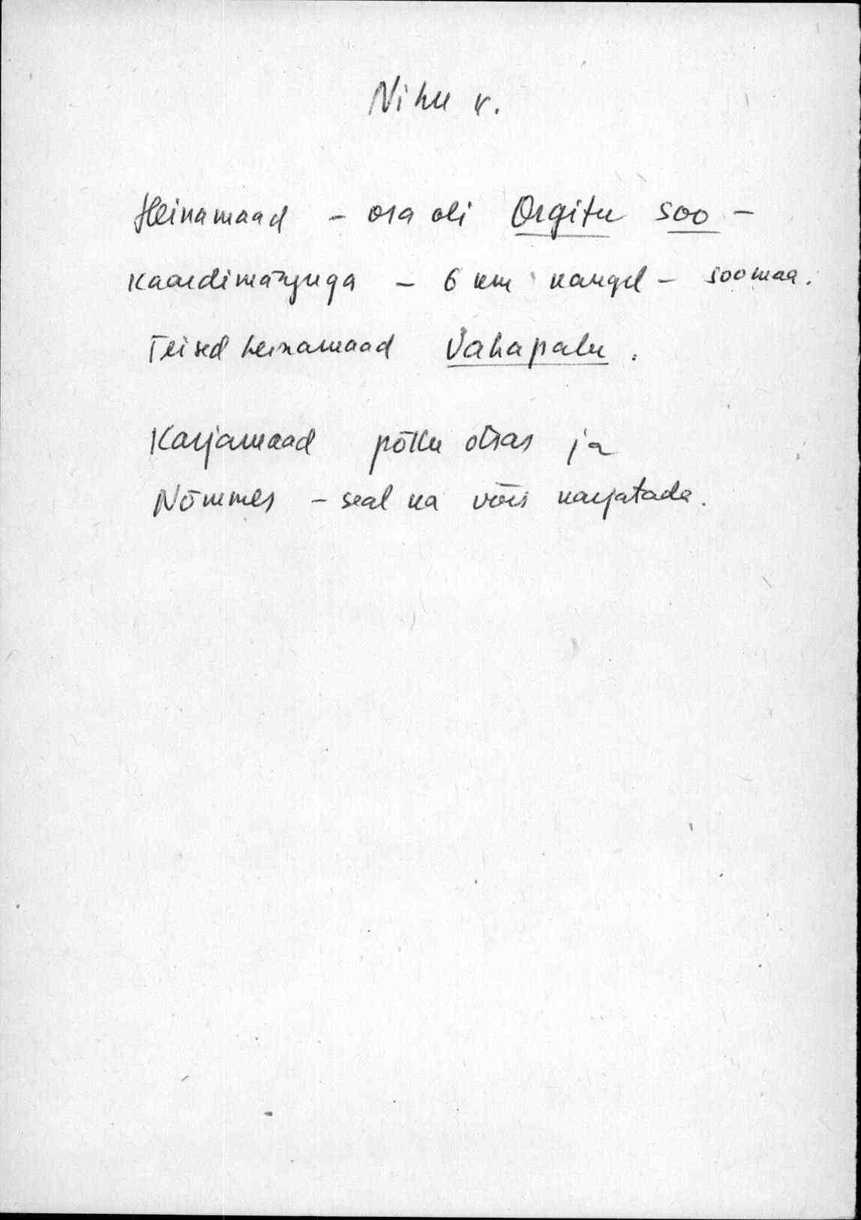 Nihu v.
Heinamaad - osa oli Orgitu soo -
kaardimänguga - 6 km kaugel - soomaa.
Teised heinamaad Vahapalu.
Karjamaad põllu otsas ja
Nõmmes - seal ka võis karjatada.